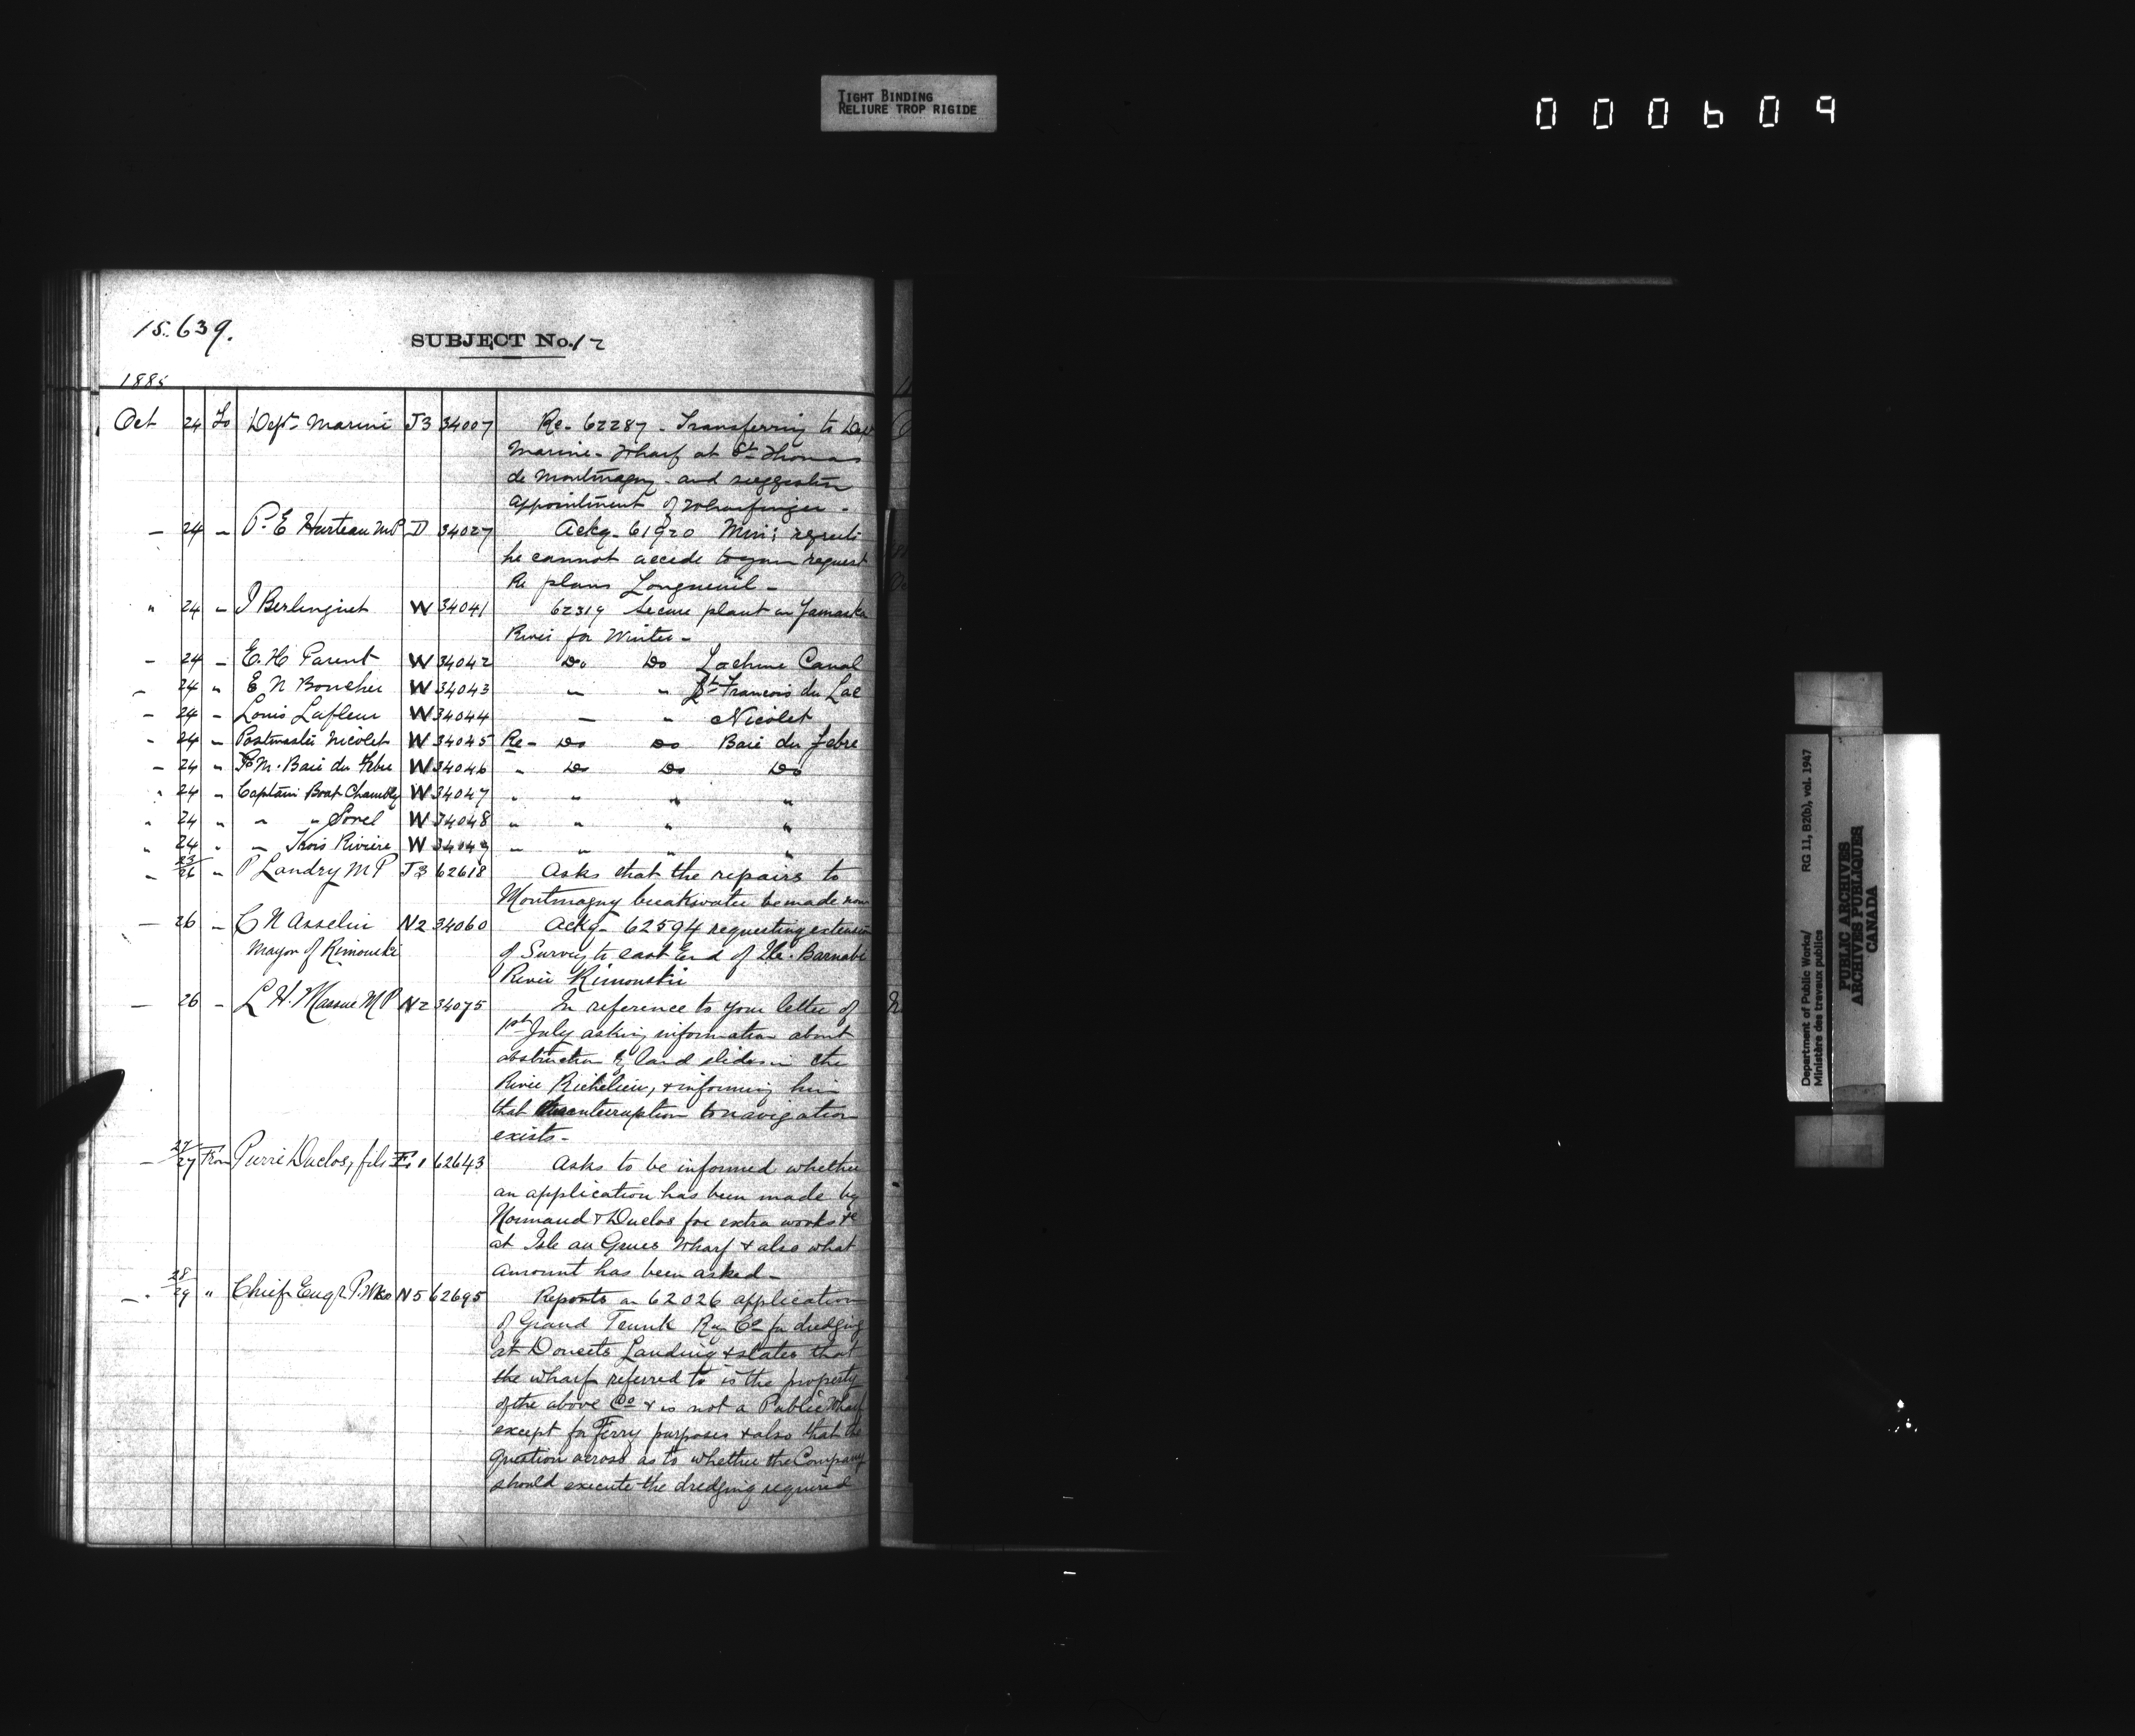 TIGHT BINDING
RELIURE TROP RIGIDE
000609
15.639.
SUBJECT No. 12
1885
Oct 24 To Dept Marine J3 34007 Re. 62287 - Transferring to Dep
Marine - Wharf at St Thomas
de Montmagny - and suggestin
appointment of Wharfinger -
— 24 — P. E Hurteau MP D 34027 Ackg. 61920 Min: regrets
he cannot accede to your request
Re plans Longueuil -
" 24 — J Berlinguet W 34041 62319 Secure plant in Yamaska
River for Winter -
— 24 — E. H Parent W 34042 Do Do Lachine Canal
— 24 " E N Boucher W 34043 — " St Francois du Lac
— 24 — Louis Lafleur W 34044 — " Nicolet
" 24 — Postmaster Nicolet W 34045 Re - Do Do Baie du Febre
— 24 " P M. Baie du Febre W 34046 " Do Do Do
" 24 " Captain Boat Chambly W 34047 " " " "
" 24 " " " Sorel W 34048 " " " "
" 24 " — Trois Riviere W 34049 " " " "
" 23/26 " P Landry M P J3 62618 Asks that the repairs to
Montmagny breakwater be made now
— 26 — C N Asselin N2 34060 Ackg - 62594 requesting extension
Mayor of Rimouski of Survey to east End of Ile. Barnabe
River Rimouski
— 26 — L H. Massue M P N2 34075 In reference to your letter of
1st July asking information about
obstruction by land slides in the
River Richelieu, & informing him
that interruption to navigation
exists -
— 27/27 From Pierre Duclos, fils E1 62643 Asks to be informed whether
an application has been made by
Normand & Duclos for extra works &c
at Isle au Grues Wharf & also what
amount has been asked -
— 28/29 " Chief Engr P. Wks N5 62695 Reports on 62026 application
of Grand Trunk Ry Co for dredging
at Doucets Landing & states that
the wharf referred to is the property
of the above Co & is not a Public Wharf
except for Ferry purposes & also that the
question arises as to whether the Company
should execute the dredging required
Department of Public Works/
Ministère des travaux publics
RG 11, B2(b), vol. 1947
PUBLIC ARCHIVES
ARCHIVES PUBLIQUES
CANADA